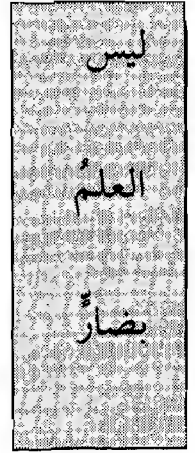 ليس
العلمُ
بضارٍّ